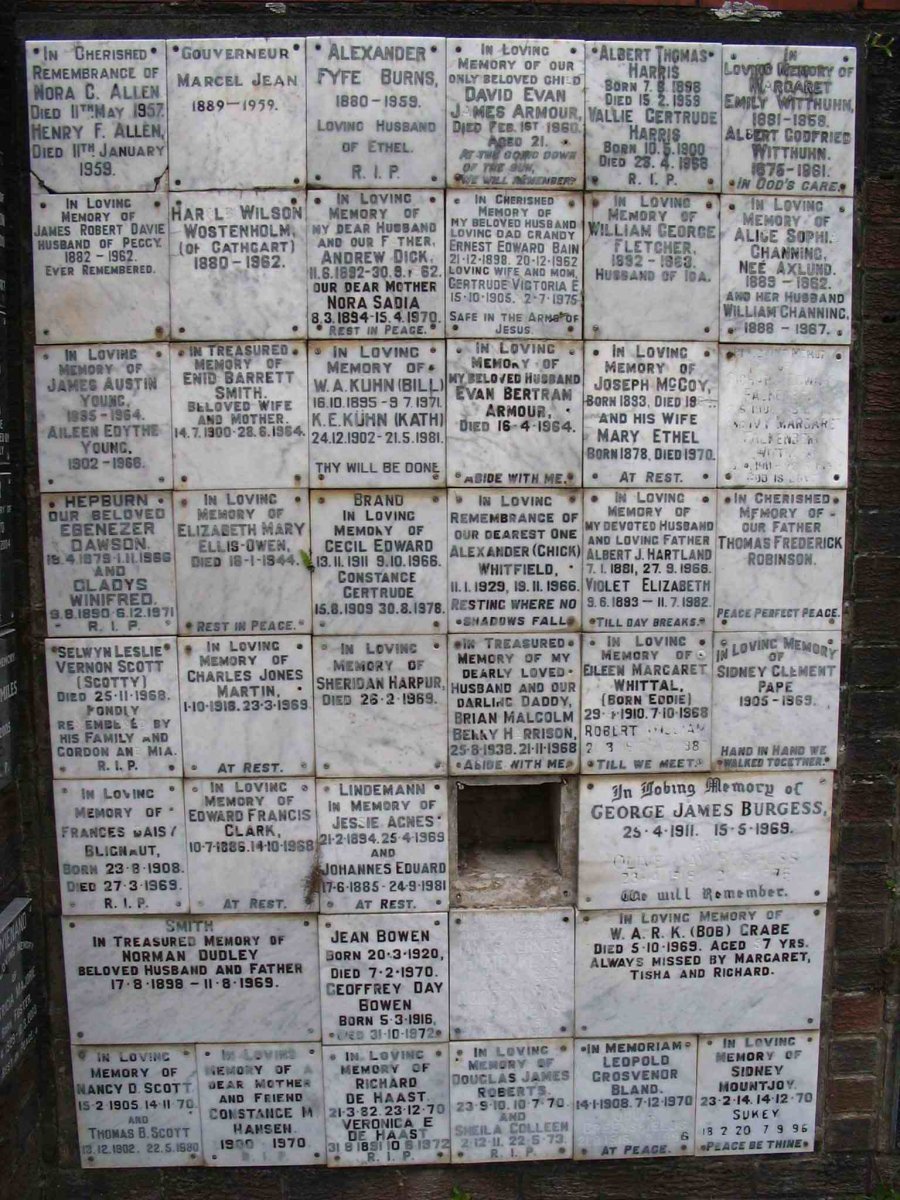 In Cherished
Remembrance of
Nora C. Allen
Died 11th May 1957.
Henry F. Allen,
Died 11th January
1959.
Gouverneur
Marcel Jean
1889–1959.
Alexander
Fyfe Burns,
1880–1959.
Loving Husband
of Ethel.
R. I. P.
In Loving
Memory of our
only beloved child
David Evan
James Armour,
Died Feb. 1st 1960.
Aged 21.
At the going down
of the sun,
We will remember
Albert Thomas
Harris
Born 7. 8. 1898
Died 15. 2. 1959
Vallie Gertrude
Harris
Born 10. 5. 1900
Died 23. 4. 1968
R. I. P.
In
Loving Memory of
Margaret
Emily Witthuhn,
1881–1958.
Albert Godfried
Witthuhn.
1875–1961.
In God's care.
In Loving
Memory of
James Robert Davie
Husband of Peggy.
1882–1962.
Ever Remembered.
Wilson
Wostenholm,
(of Cathcart)
1880–1962.
In Loving
Memory of
my dear Husband
and our F ther,
Andrew Dick,
11.6.1892-30.9. 62.
our dear Mother
Nora Sadia
8.3.1894-15.4.1970.
Rest in Peace.
In Cherished
Memory of
my beloved husband
loving dad grandy
Ernest Edward Bain
21·12·1898. 20·12·1962
loving wife and mom,
Gertrude Victoria E
15·10·1905. 2·7·1975
Safe in the Arms of
Jesus.
In Loving
Memory of
William George
Fletcher,
1892–1963.
Husband of Ida.
In Loving
Memory of
Alice Sophi
Channing,
nee Axlund.
1889–1962.
and her husband
William Channing,
1888–1967.
In Loving
Memory of
James Austin
Young,
1895–1964.
Aileen Edythe
Young,
1902–1966.
In Treasured
Memory of
Enid Barrett
Smith.
beloved wife
and mother.
14.7.1900-28.6.1964.
In Loving
Memory of
W.A.Kuhn (Bill)
16.10.1895 – 9.7.1971.
K.E.Kuhn (Kath)
24.12.1902-21.5.1981.
Thy will be done
In Loving
Memory of
my beloved husband
Evan Bertram
Armour,
Died 16·4·1964.
Abide with me.
In Loving
Memory of
Joseph McCoy,
born 1893, Died 19
and his wife
Mary Ethel
Born 1878, Died 1970.
At Rest.
Hepburn
our beloved
Ebenezer
Dawson.
18.4.1879-1.11.1966
and
Gladys
Winifred.
9.8.1890 6.12.1971
R. I. P.
In Loving
Memory of
Elizabeth Mary
Ellis-Owen,
Died 18-1-1944.
Rest in Peace.
Brand
In Loving
Memory of
Cecil Edward
13.11.1911 9.10.1966.
Constance
Gertrude
15.8.1909 30.8.1978.
In Loving
Remembrance of
our dearest one
Alexander (Chick)
Whitfield,
11.1.1929, 19.11.1966.
Resting where no
shadows fall
In Loving
Memory of
my devoted husband
and loving father
Albert J. Hartland
7.1.1881, 27.9.1966.
Violet Elizabeth
9.6.1893 – 11.7.1982.
Till day breaks.
In Cherished
Memory of
our Father
Thomas Frederick
Robinson.
Peace perfect peace.
Selwyn Leslie
Vernon Scott
(Scotty)
Died 25·11·1968.
Fondly
re emb e ed by
his family and
Gordon and Mia.
R. I. P.
In Loving
Memory of
Charles Jones
Martin,
1·10·1918. 23·3·1969.
At Rest.
In Loving
Memory of
Sheridan Harpur,
Died 26·2·1969.
In Treasured
Memory of my
dearly loved
husband and our
darling daddy,
Brian Malcolm
Berry Harrison,
25·8·1938. 21·11·1968
Abide with me
In Loving
Memory of
Eileen Margaret
Whittal,
(Born Eddie)
1910. 7·10·1968
Robert William
Till we meet.
In Loving Memory
of
Sidney Clement
Pape
1905–1969.
Hand in hand we
walked together.
In Loving
Memory of
Frances Daisy
Blignaut,
Born 23·8·1908.
Died 27·3·1969.
R. I. P.
In Loving
Memory of
Edward Francis
Clark,
10·7·1886. 14·10·1968
At Rest.
Lindemann
in Memory of
Jessie Agnes
21·2·1894. 25·4·1969
and
Johannes Eduard
17·6·1885 – 24·9·1981
At Rest.
In Loving Memory of
George James Burgess,
25·4·1911. 15·5·1969.
We will Remember.
Smith
In Treasured Memory of
Norman Dudley
beloved Husband and Father
17·8·1898 – 11·8·1969.
Jean Bowen
Born 20·3·1920,
Died 7·2·1970.
Geoffrey Day
Bowen
Born 5·3·1916,
Died 31·10·1972
In Loving Memory of
W. A. R. K. (Bob) Crabe
Died 5·10·1969. Aged 7 yrs.
Always missed by Margaret,
Tisha and Richard.
In Loving
Memory of
Nancy D. Scott
15·2·1905. 14·11·70
and
Thomas B. Scott
13.12.1902. 22.5.1980
In Loving
Memory of a
dear Mother
and Friend
Constance M
Hansen.
1900 1970
R. I. P.
In Loving
Memory of
Richard
de Haast.
21·3·82. 23·12·70
Veronica E
de Haast
R. I. P.
In Loving
Memory of
Douglas James
Roberts.
23·9·10. 10·7·70.
and
Sheila Colleen
2·12·11. 22·5·73.
R. I. P.
In Memoriam
Leopold
Grosvenor
Bland.
14·1·1908. 7·12·1970
At Peace.
In Loving
Memory of
Sidney
Mountjoy.
23·2·14. 14·12·70
Sukey
18 2 20 7 9 96
Peace be thine